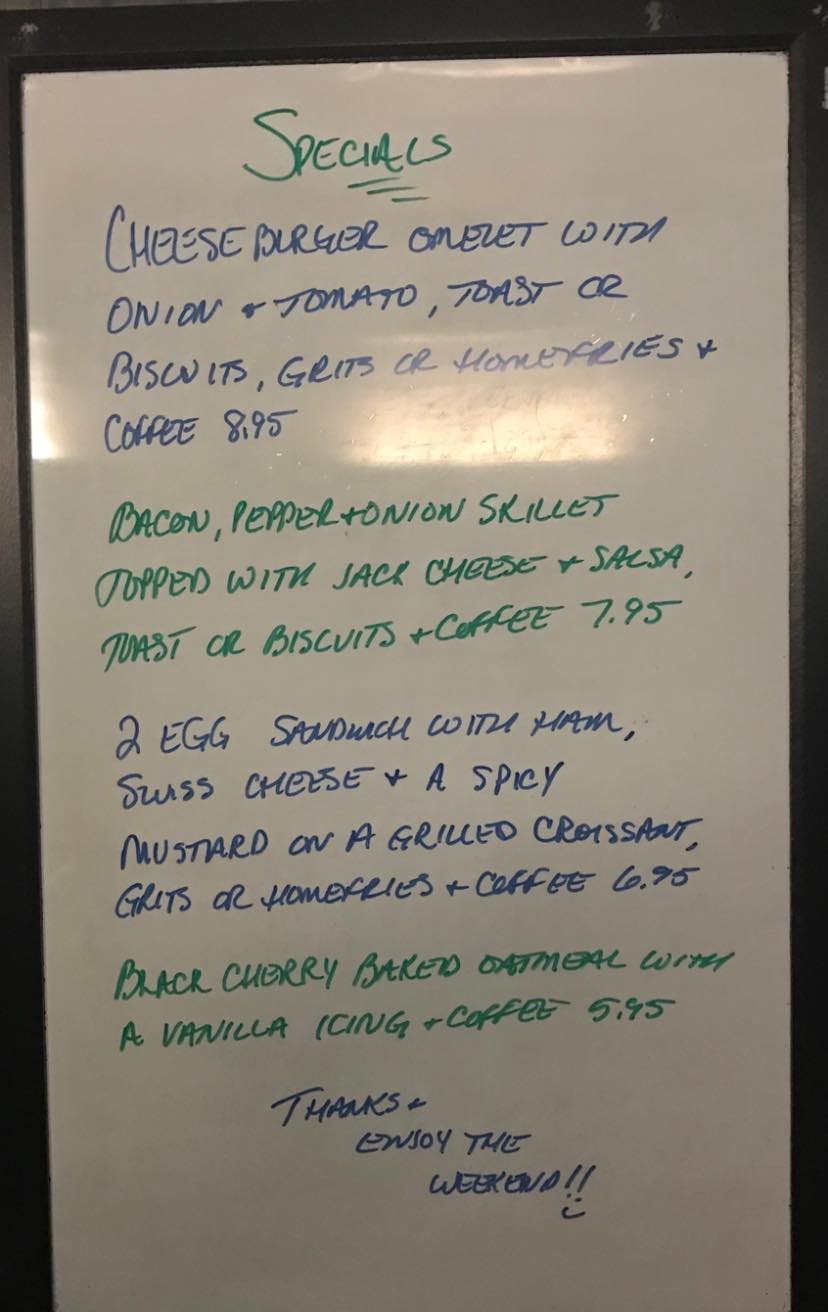 SPECIALS
CHEESEBURGER OMELET WITH
ONION & TOMATO, TOAST OR
BISCUITS, GRITS OR HOMEFRIES &
COFFEE 8.95
BACON, PEPPER + ONION SKILLET
TOPPED WITH JACK CHEESE & SALSA,
TOAST OR BISCUITS + COFFEE 7.95
2 EGG SANDWICH WITH HAM,
SWISS CHEESE & A SPICY
MUSTARD ON A GRILLED CROISSANT,
GRITS OR HOMEFRIES + COFFEE 6.95
BLACK CHERRY BAKED OATMEAL WITH
A VANILLA ICING + COFFEE 5.95
THANKS &
ENJOY THE
WEEKEND!!